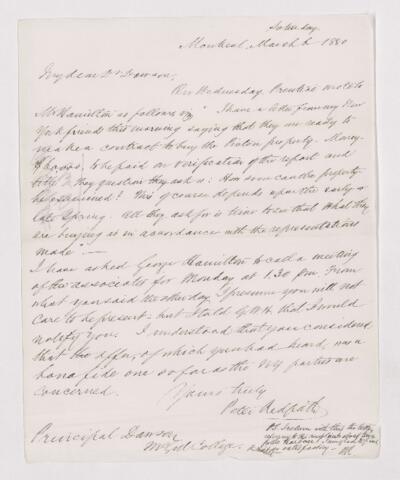 Saturday.
Montreal March 6 1880
My dear Dr Dawson,
On Wednesday Prentice wrote to
Mr Hamilton as follows viz "I have a letter from my New
York friends this morning saying that they are ready to
make a contract to buy the property. Money
to be paid on verification of the report and
title. They question they ask is: How soon can the property
be examined? This of course depends upon the early or
late spring. All they ask for is time to see that what they
are buying is in accordance with the representations
made" —
I have asked George Hamilton to call a meeting
of the associates for Monday at 1.30 pm. From
what you said the other day, I presume you will not
care to be present - but I told G.W.H. that I would
notify you. I understood that you considered
that the offer, of which you had heard, was a
bona fide one so far as the NY parties are
concerned.
Yours truly
Peter Redpath
Principal Dawson
McGill College.
PS. I return with this the letter
referring to the
satisfactory - PR